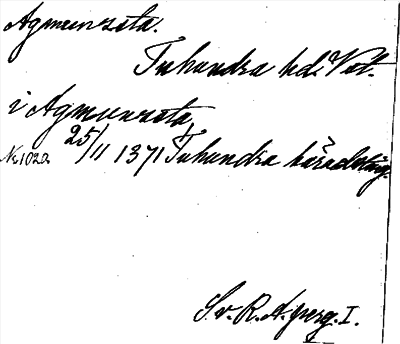 Agmundzsta.
Tuhundra hd. Vet.
i Agmundzsta,
Nr 1022 25/11 1371 Tuhundra häradsting.
S.v. R. A. perg. I.